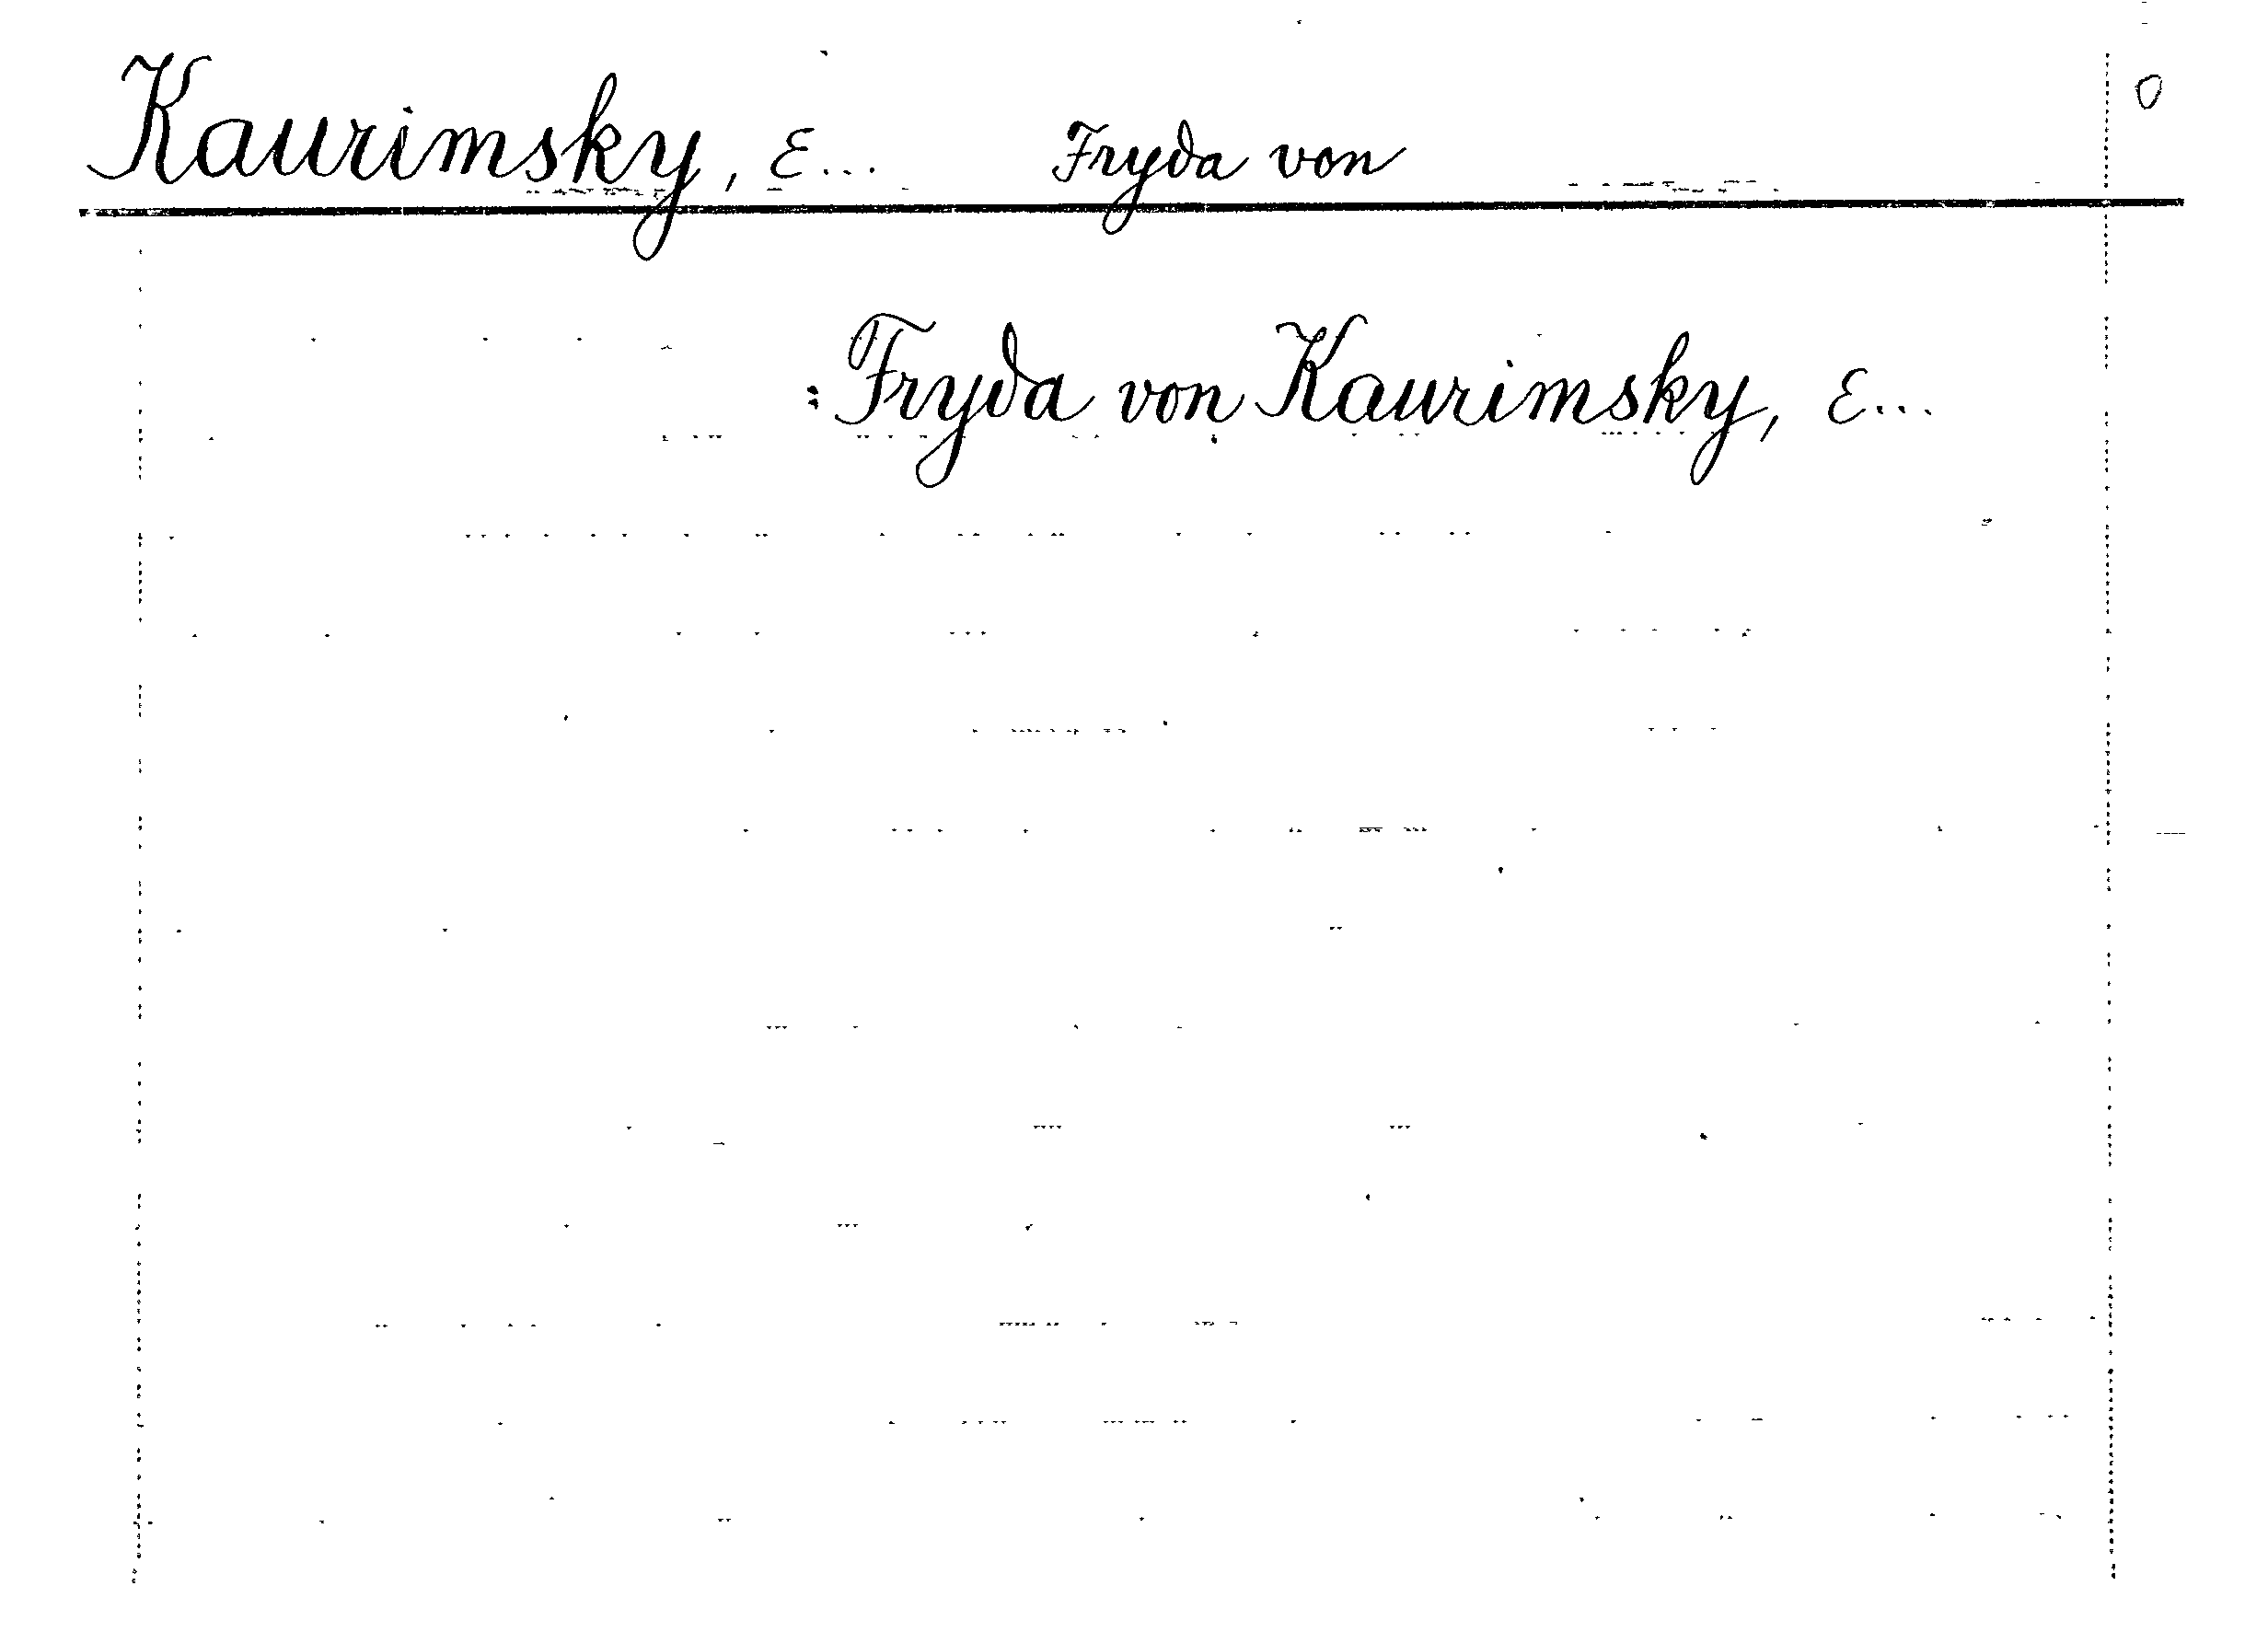 Kaurimsky, E... Fryda von 0
: Fryda von Kaurimsky, E...